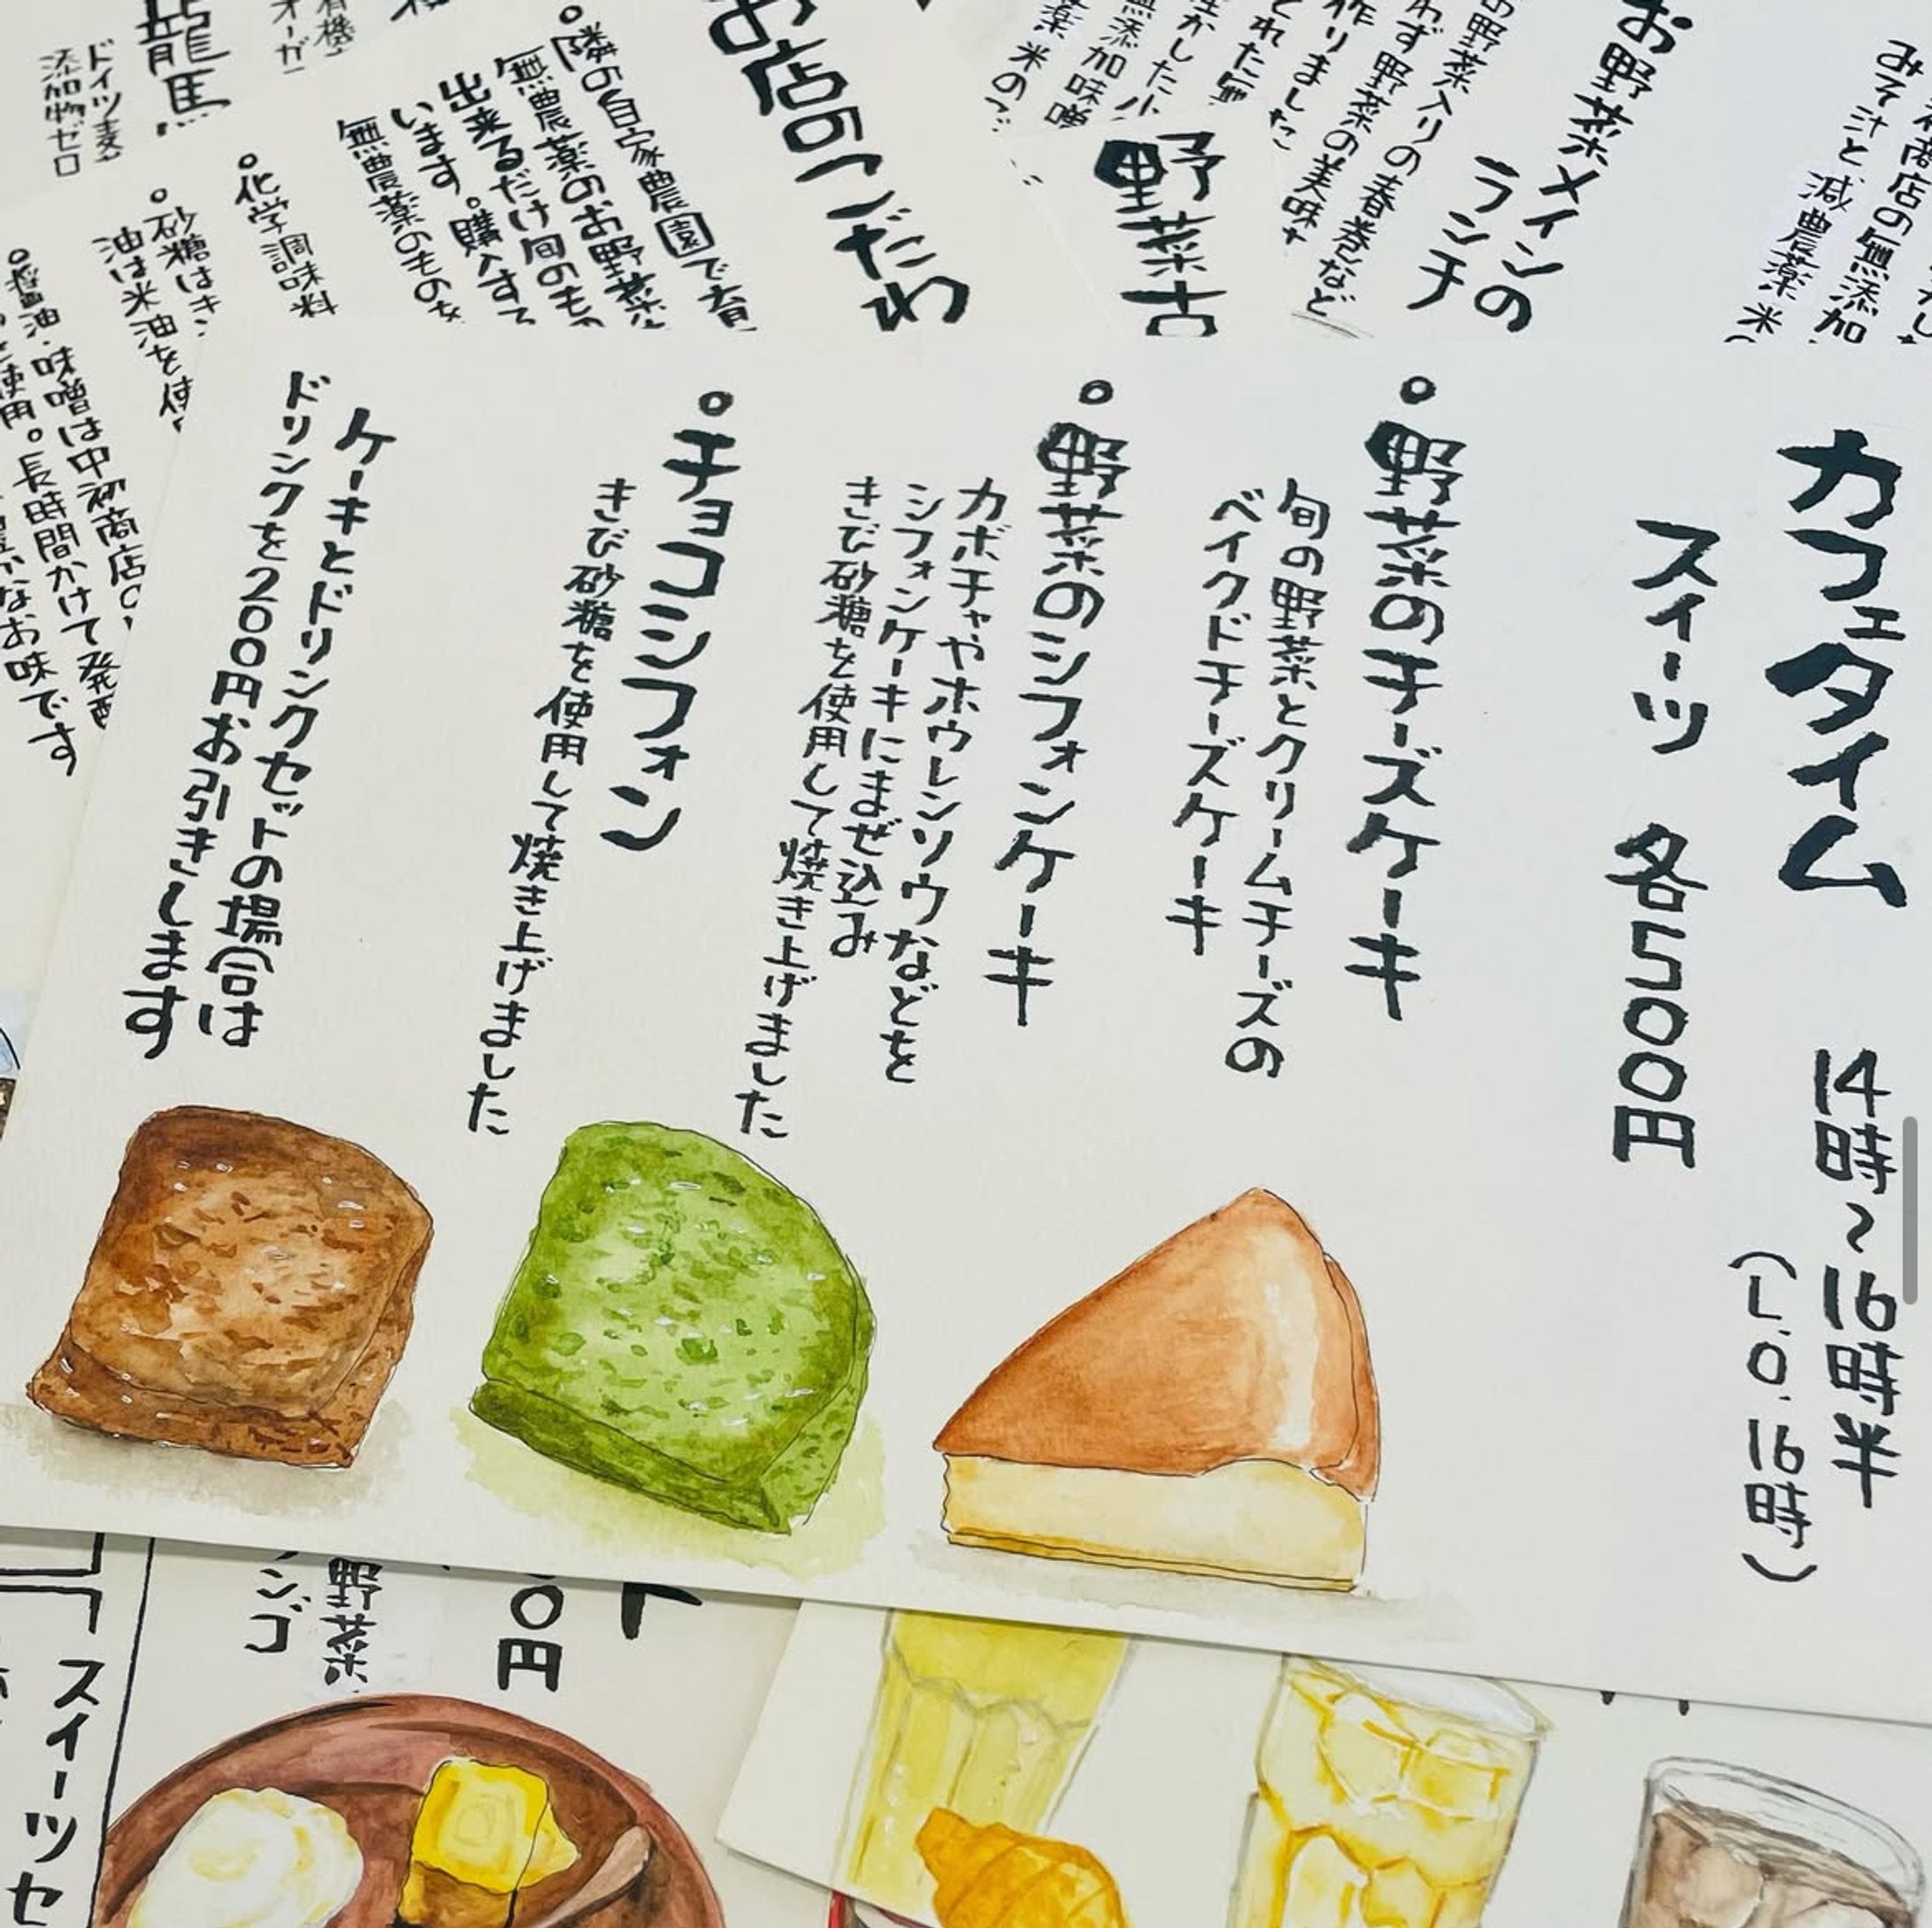 カフェタイム 14時~16時半
(L.O.16時)
スイーツ 各500円
。野菜のチーズケーキ
旬の野菜とクリームチーズの
ベイクドチーズケーキ
。野菜のシフォンケーキ
カボチャやホウレンソウなどを
シフォンケーキにまぜ込み
きび砂糖を使用して焼き上げました
。チョコシフォン
きび砂糖を使用して焼き上げました
ケーキとドリンクセットの場合は
ドリンクを200円お引きします
みそ汁と減農薬米
商店の無添加
お野菜メインの
ランチ
の野菜入りの春巻など
わず野菜の美味
作りました
とれた
生かした
無添加味噌
米の
野菜
お店のこだわ
。隣の自家農園で育
無農薬のお野菜
出来るだけ旬のも
います。購入する
無農薬のものを
。化学調味料
。砂糖はき
油は米油を使
。醤油・味噌は中初商店の
使用。長時間かけて発酵
なお味です
龍馬
ドイツ麦
添加物ゼロ
有機
オーガ
ト
0円
野菜
ンゴ
スイーツセ